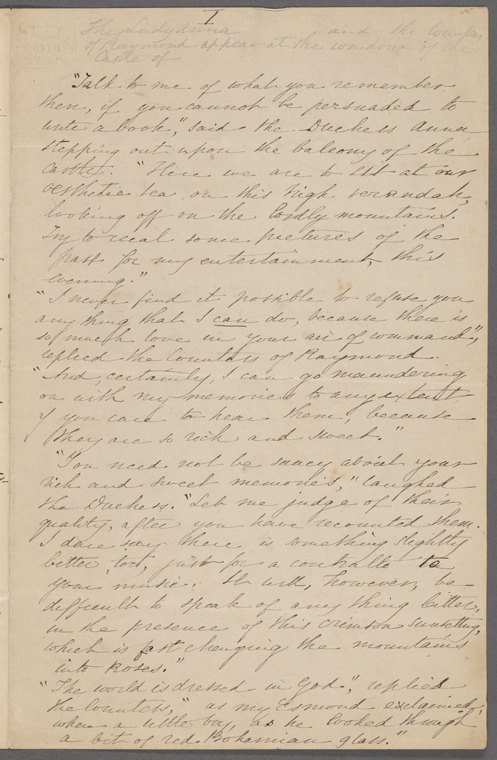 I
The Lady Anna and the Countess
of Raymond appear at the window of the
Castle of
"Talk to me of what you remember
then, if you cannot be persuaded to
write a book," said the Duchess Anna,
stepping out upon the balcony of the
Castle. "Here we are to sit at our
aesthetic tea on this high verandah,
looking off on the lordly mountains.
Try to recal some pictures of the
past for my entertainment, this
evening."
"I never find it possible to refuse you
any thing that I can do, because there is
so much love in your air of command,"
replied the Countess of Raymond.
"And, certainly, I can go maundering
on with my memories to any extent
if you care to hear them, because
they are so rich and sweet."
"You need not be saucy about your
rich and sweet memories," laughed
the Duchess. "Let me judge of their
quality, after you have recounted them.
I dare say there is something slightly
bitter, too, just for a contralto to
your music. It will, however, be
difficult to speak of any thing bitter,
in the presence of this crimson sunsetting,
which is fast changing the mountains
into Roses."
"The world is dressed in God", replied
the Countess, "as my Esmond exclaimed,
when a little boy, as he looked through
a bit of red Bohemian glass."